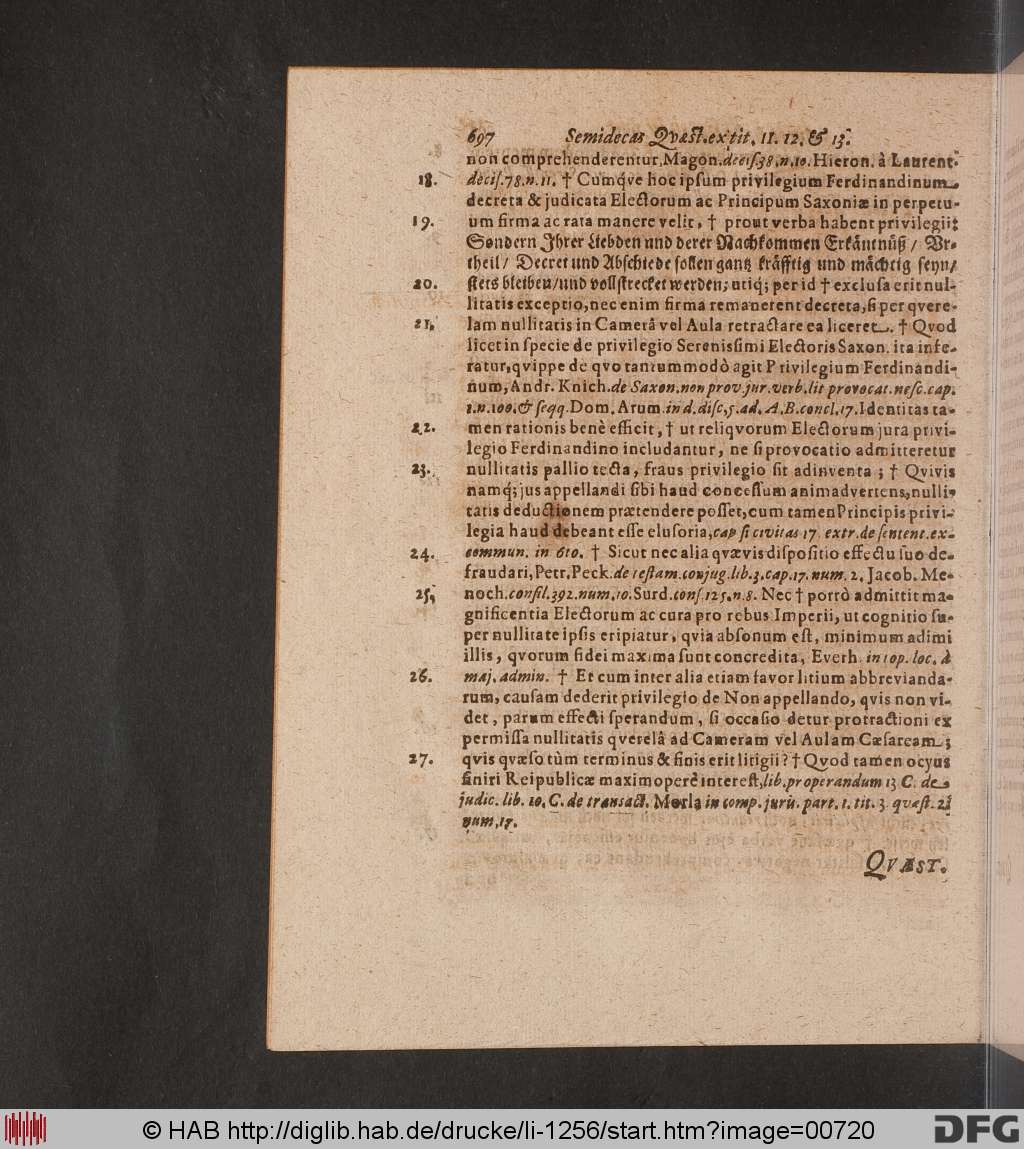 697 Semidecas Qvæst. ex tit. 11. 12. & 13.
non comprehenderentur, Magon. decis. 38. n. 10. Hieron. à Laurent.
18. decis. 78. n. 11. † Cumq́ve hoc ipsum privilegium Ferdinandinum
decreta & judicata Electorum ac Principum Saxoniæ in perpetu-
19. um firma ac rata manere velit, † prout verba habent privilegii:
Sondern Jhrer Liebden und derer Nachkommen Erkäntnüß / Vr-
theil / Decret und Abschiede sollen gantz kräfftig und mächtig seyn /
20. stets bleiben / und vollstrecket werden; utiq́; per id † exclusa erit nul-
litatis exceptio, nec enim firma remanerent decreta, si per qvere-
21. lam nullitatis in Camerâ vel Aula retractare ea liceret. † Qvod
licet in specie de privilegio Serenissimi Electoris Saxon. ita infe-
ratur, qvippe de qvo tantummodò agit Privilegium Ferdinandi-
num, Andr. Knich. de Saxon. non prov. jur. verb. lit provocat. nesc. cap.
1. n. 100. & seqq. Dom. Arum. in d. disc. 5. ad. A. B. concl. 17. Identitas ta-
22. men rationis benè efficit, † ut reliqvorum Electorum jura privi-
legio Ferdinandino includantur, ne si provocatio admitteretur
23. nullitatis pallio tecta, fraus privilegio sit adinventa; † Qvivis
namq́; jus appellandi sibi haud concessum animadvertens, nulli-
tatis deductionem prætendere posset, cum tamen Principis privi-
legia haud debeant esse elusoria, cap si civitas 17. extr. de sentent. ex-
24. commun. in 6to. † Sicut nec alia qvævis dispositio effectu suo de-
fraudari, Petr. Peck. de testam. conjug. lib. 3. cap. 17. num. 2. Jacob. Me-
25. noch. consil. 392. num. 10. Surd. cons. 125. n. 8. Nec † porrò admittit ma-
gnificentia Electorum ac cura pro rebus Imperii, ut cognitio su-
per nullitate ipsis eripiatur, qvia absonum est, minimum adimi
illis, qvorum fidei maxima sunt concredita, Everh. in top. loc. à
26. maj. admin. † Et cum inter alia etiam favor litium abbrevianda-
rum, causam dederit privilegio de Non appellando, qvis non vi-
det, parum effecti sperandum, si occasio detur protractioni ex
permissa nullitatis qverelâ ad Cameram vel Aulam Cæsaream;
27. qvis qvæso tùm terminus & finis erit litigii? † Qvod tamen ocyus
finiri Reipublicæ maximoperè interest, lib. properandum 13 C. de
judic. lib. 10. C. de transact. Morla in comp. juris. part. 1. tit. 3. quæst. 2.
num. 17.
QVÆST.
© HAB http://diglib.hab.de/drucke/li-1256/start.htm?image=00720
DFG